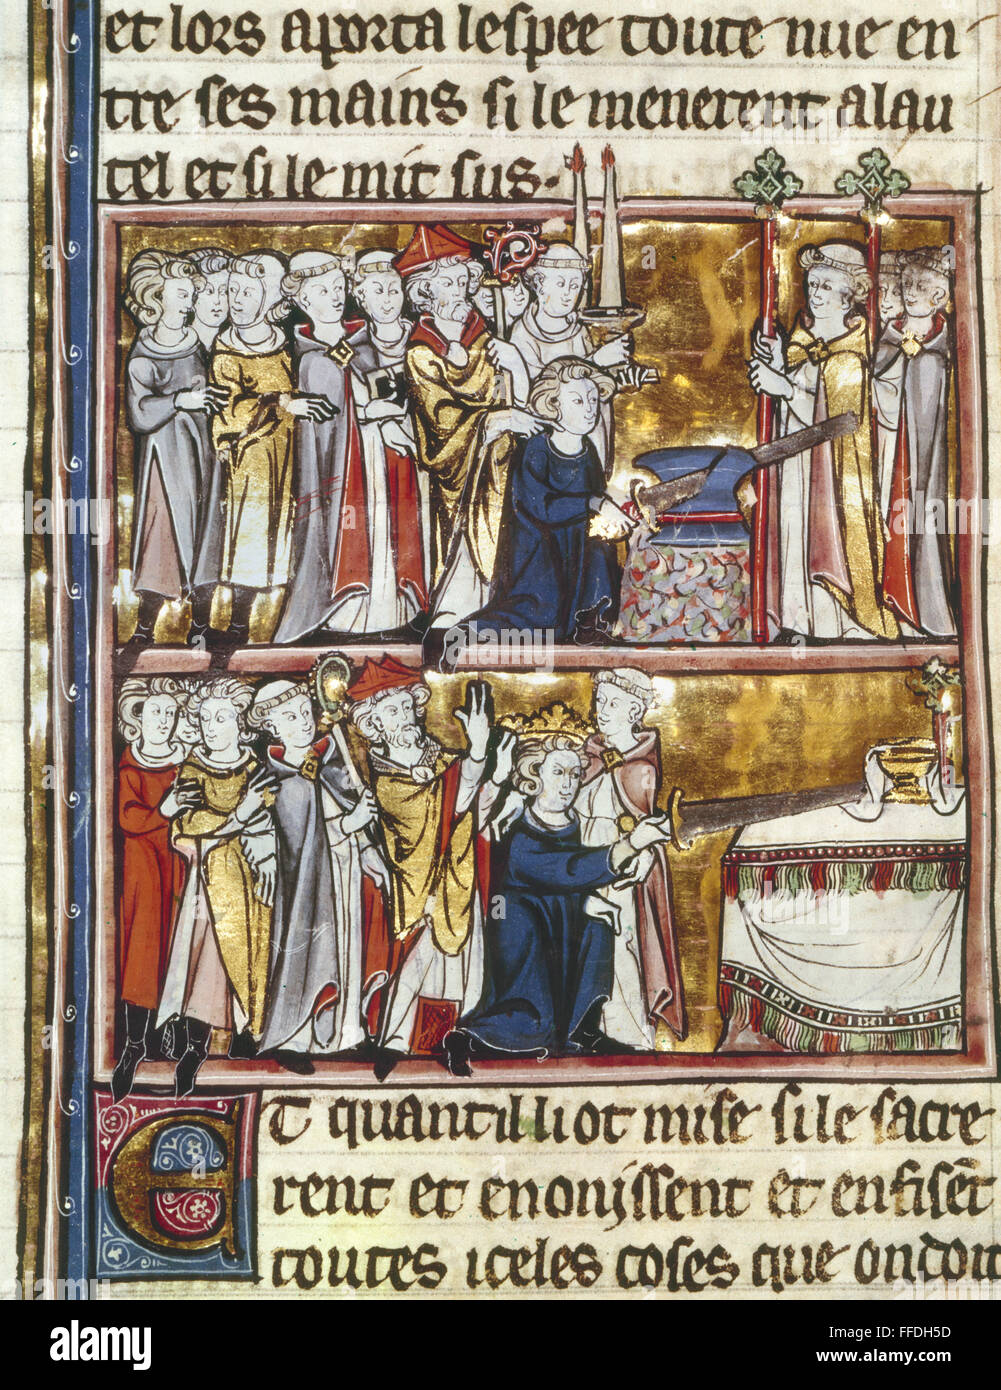 et lors aporta lespee toute nue en
tre ses mains si le menerent alau
tel et si le mit sus.
ET quant il li ot mise si le sacre
rent et enonissent et enfisēt
toutes iceles coses que on doit
alamy
Image ID: FFDH5D
www.alamy.com